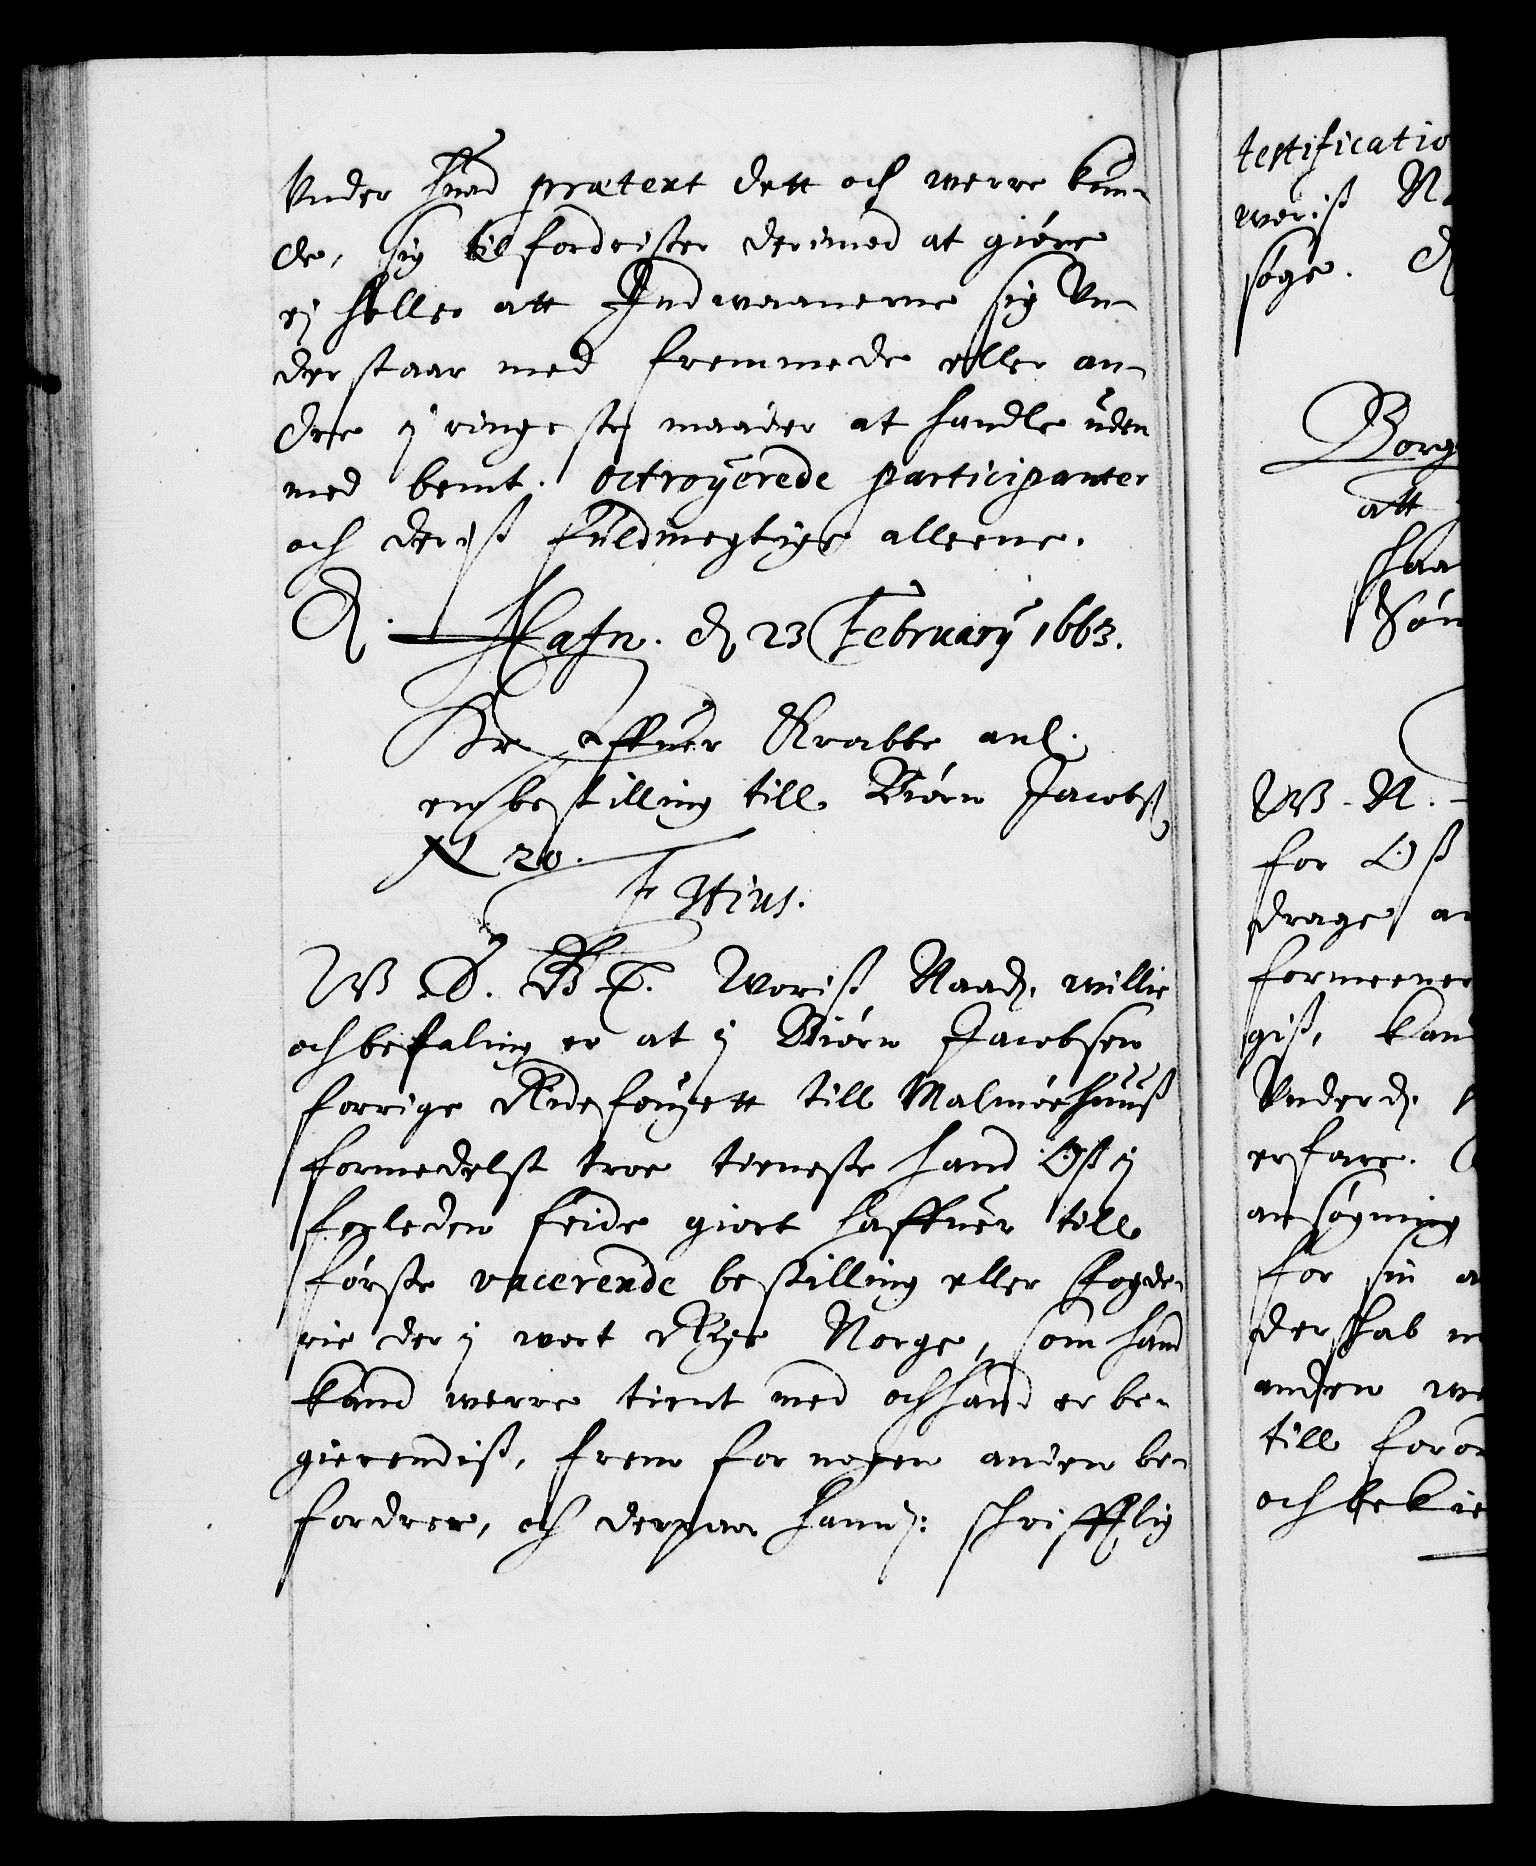 Vnder huad prætext dett och werre kun-
de, sig til fordrister derimod at giøre
ej heller att Indwaanerne sig Vn-
derstaar med fremmede eller an-
dre ij ringeste maader at handle uden
med bemt. octroyerede participanter
och deriß fuldmegtige alleene.
D. Hafn. d. 23 February 1663.
Her Iffuer Krabbe anl.
en bestilling till Biørn Jacobß
N 20.
F Ttius.
W S. G T. Woriß Naad. willie
och befaling er at ij Biørn Jacobsen
forrige Ridefougett till Malmøehuuß
formedelst troe tieneste hand Oß ij
forleden feide giort haffuer till
første vacerende bestilling eller Fogde-
rie der ij wort Rige Norge, som hand
kand werre tient med och hand er be-
gierendiß, frem for nogen anden be-
fordrer, och derpaa hannd: schrifftlig
testificatio
weriß N
søge. D
Borg
att
schaa
Søn
W. N.
for Oß
drage a
formeener
giß, kan
Vnder d.
erfare.
ansøgning
for sin a
derschab
anden we
till foror
och bekie